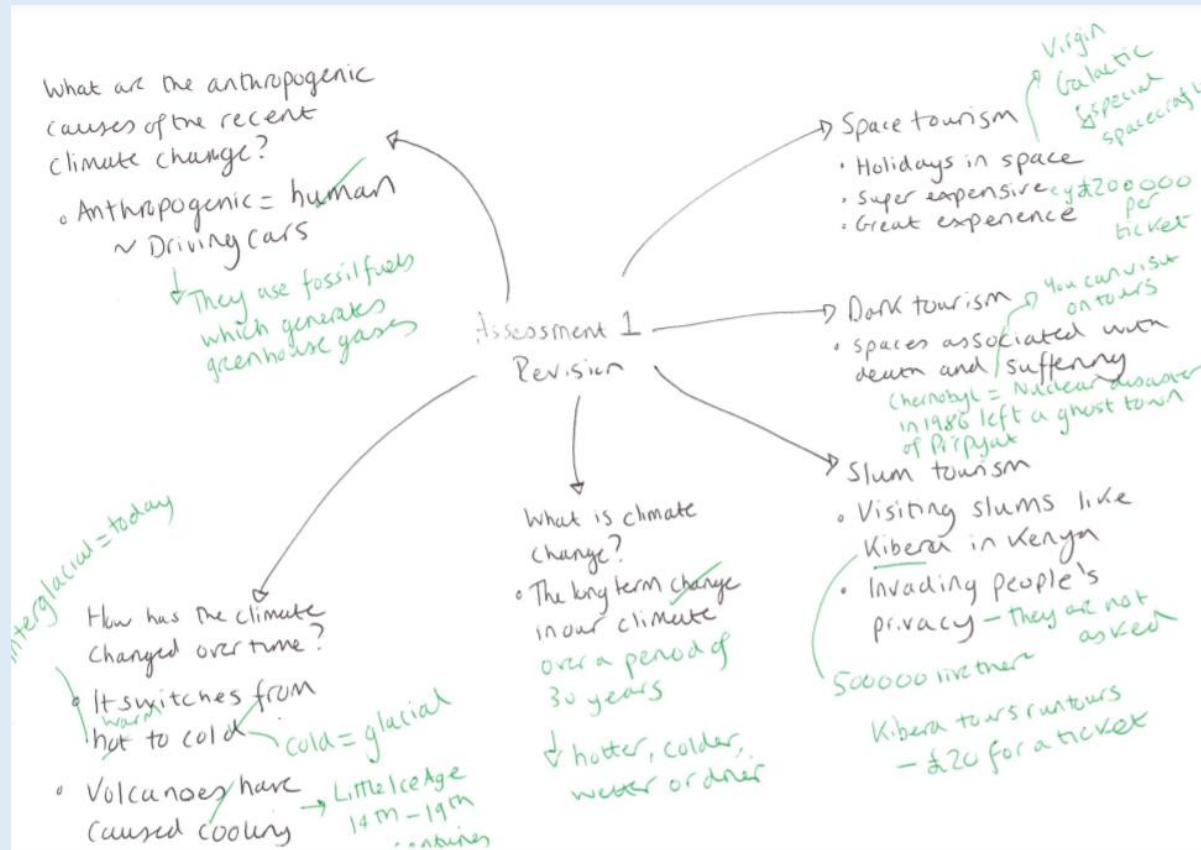 What are the anthropogenic
causes of the recent
climate change?
• Anthropogenic = human
~ Driving cars
They use fossil fuels
which generates
greenhouse gases
Space tourism
Virgin
Galactic
special
spacecraft
• Holidays in space
• Super expensive eg £200000
per
ticket
• Great experience
Dark tourism
You can visit
on tours
• spaces associated with
death and suffering
Chernobyl = Nuclear disaster
in 1986 left a ghost town
of Pirpyat
Assessment 1
Revision
Slum tourism
• Visiting slums like
Kibera in Kenya
• Invading people's
privacy – they are not
asked
500000 live there
Kibera tours run tours
- £20 for a ticket
What is climate
change?
• The long term change
in our climate
over a period of
30 years
hotter, colder,
wetter or drier
interglacial = today
How has the climate
changed over time?
• It switches from
warm
hot to cold
cold = glacial
• Volcanoes have
caused cooling
Little Ice Age
14th - 19th
centuries